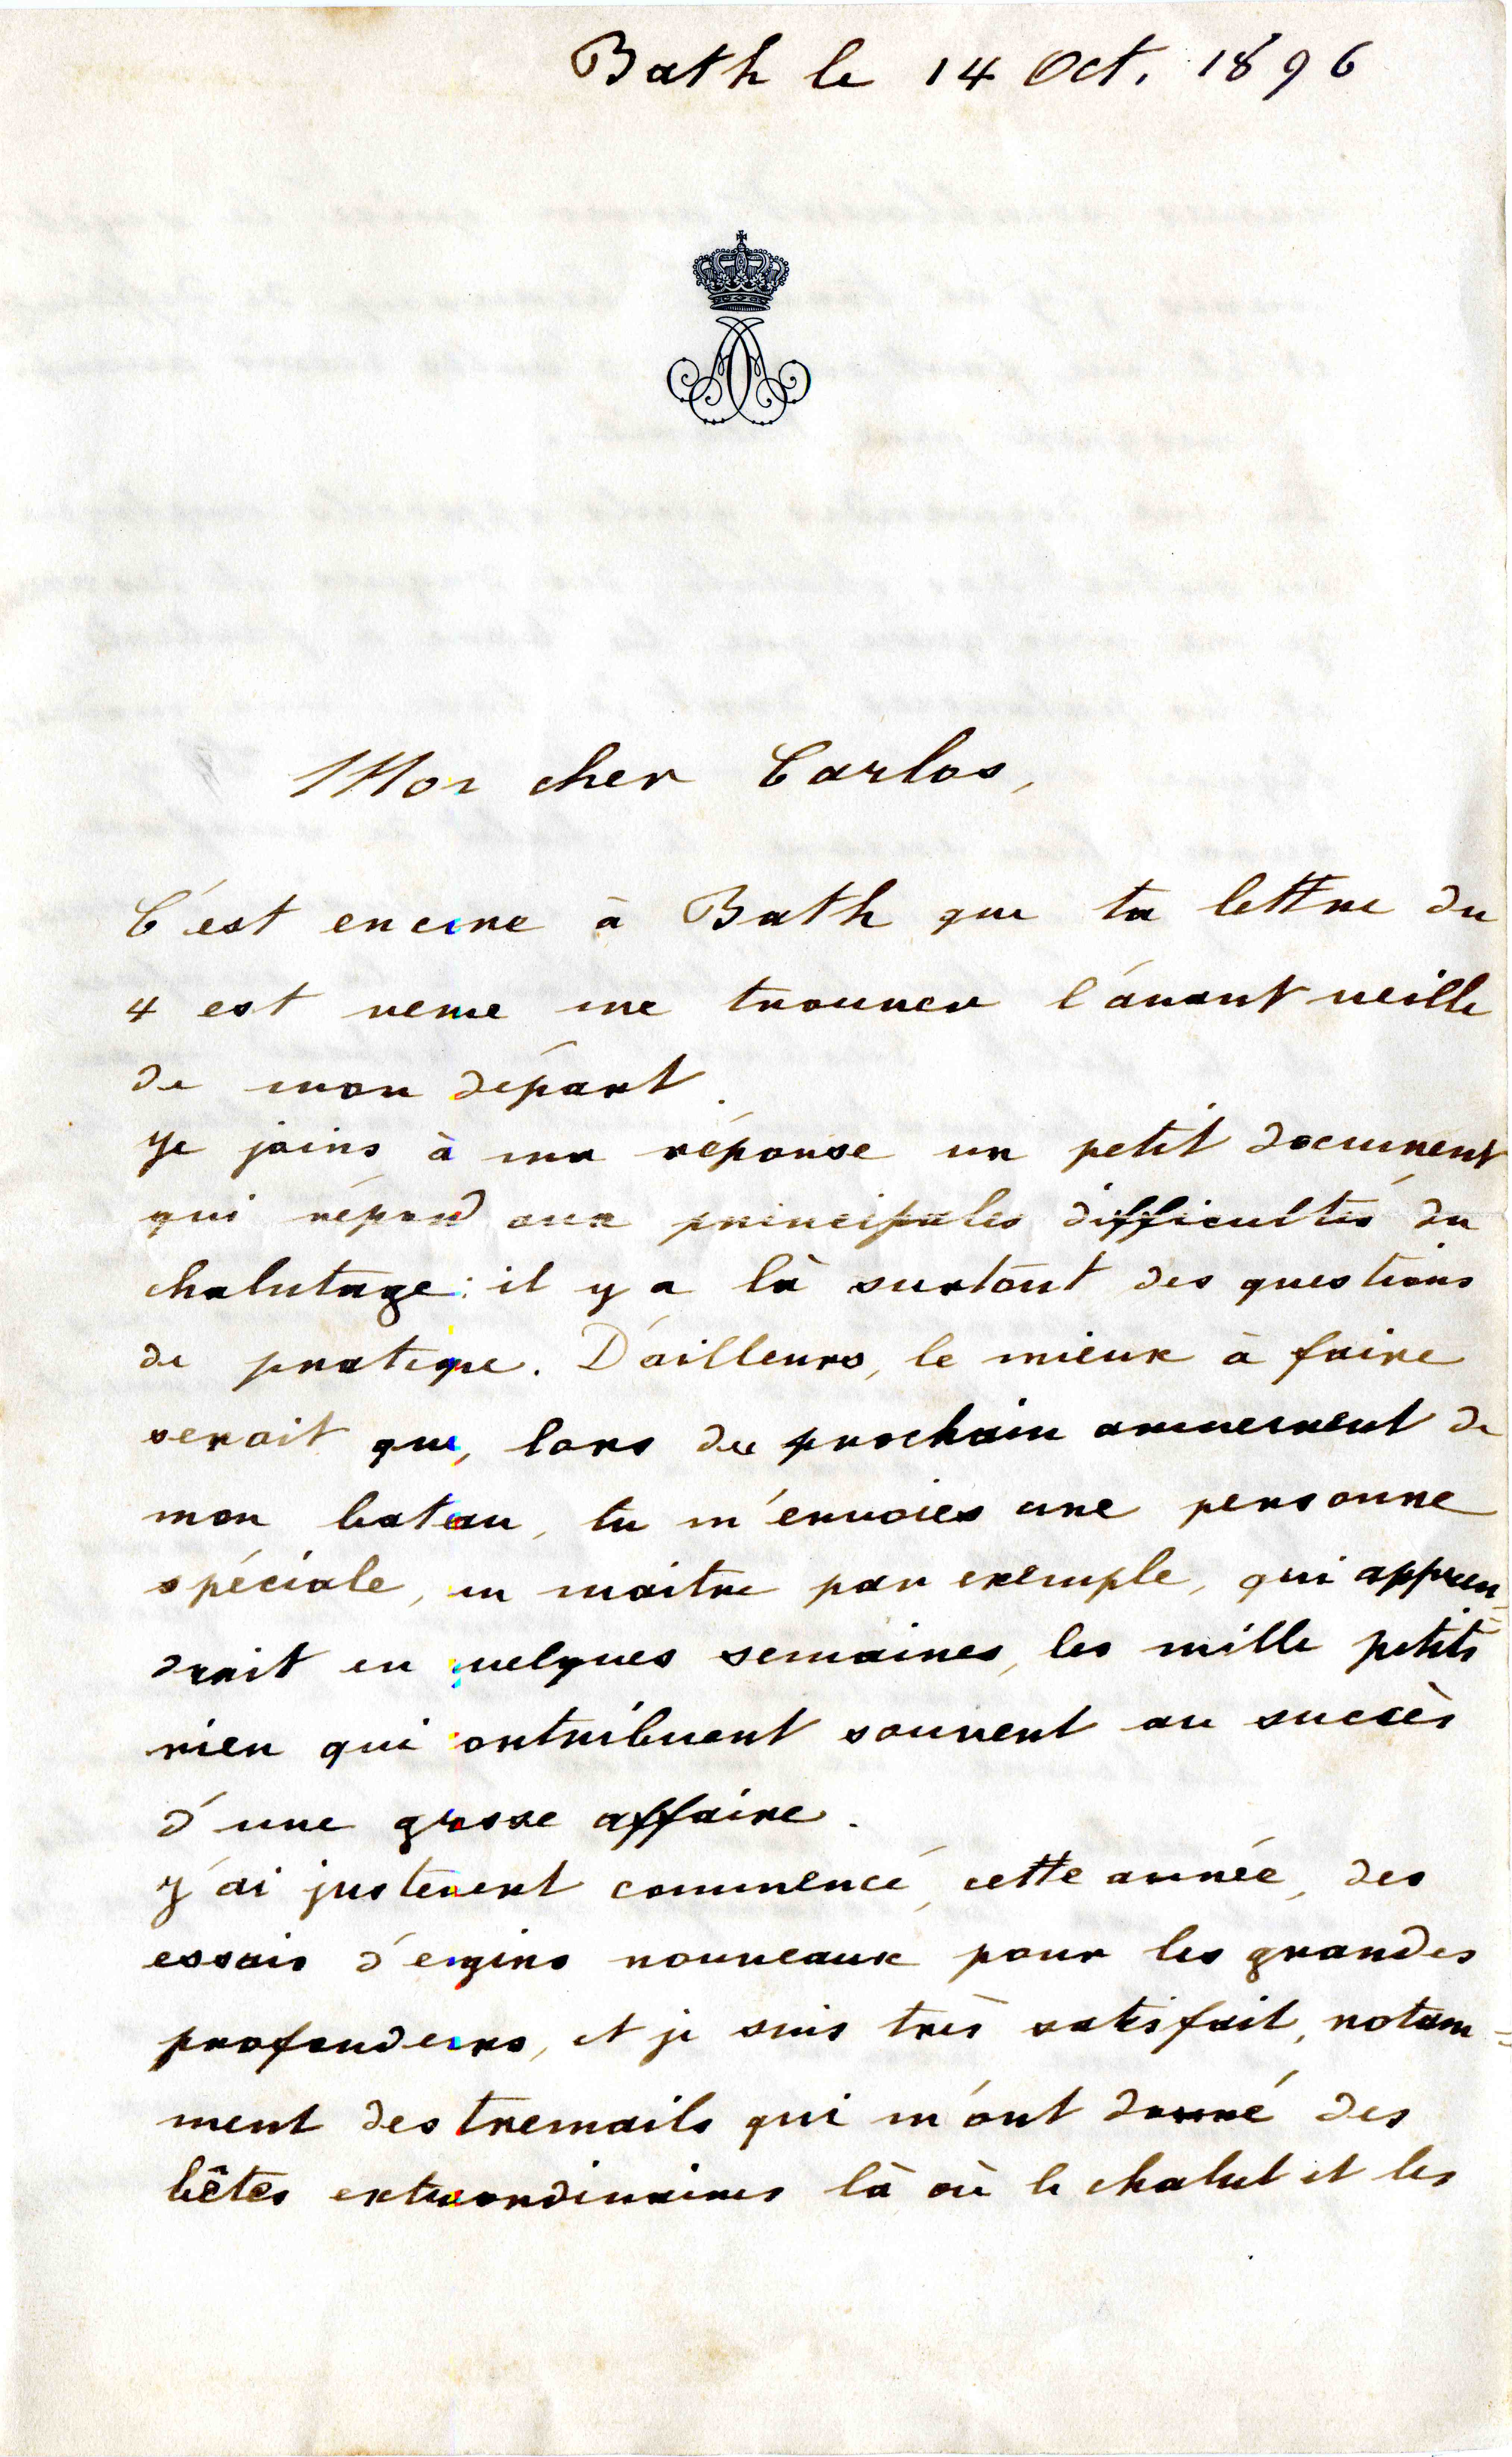 Bath le 14 Oct. 1896
Mon cher Carlos,
C'est encore à Bath que ta lettre du
4 est venue me trouver l'avant veille
de mon départ.
Je joins à ma réponse un petit document
qui répond aux principales difficultés du
chalutage: il y a là surtout des questions
de pratique. D'ailleurs, le mieux à faire
serait que, lors du prochain armement de
mon bateau, tu m'envoies une personne
spéciale, un maitre par exemple, qui appren-
drait en quelques semaines, les mille petits
rien qui contribuent souvent au succès
d'une grosse affaire.
J'ai justement commencé, cette année, des
essais d'engins nouveaux pour les grandes
profondeurs, et je suis très satisfait, notam=
ment des tremails qui m'ont donné des
bêtes extraordinaires là où le chalut et les